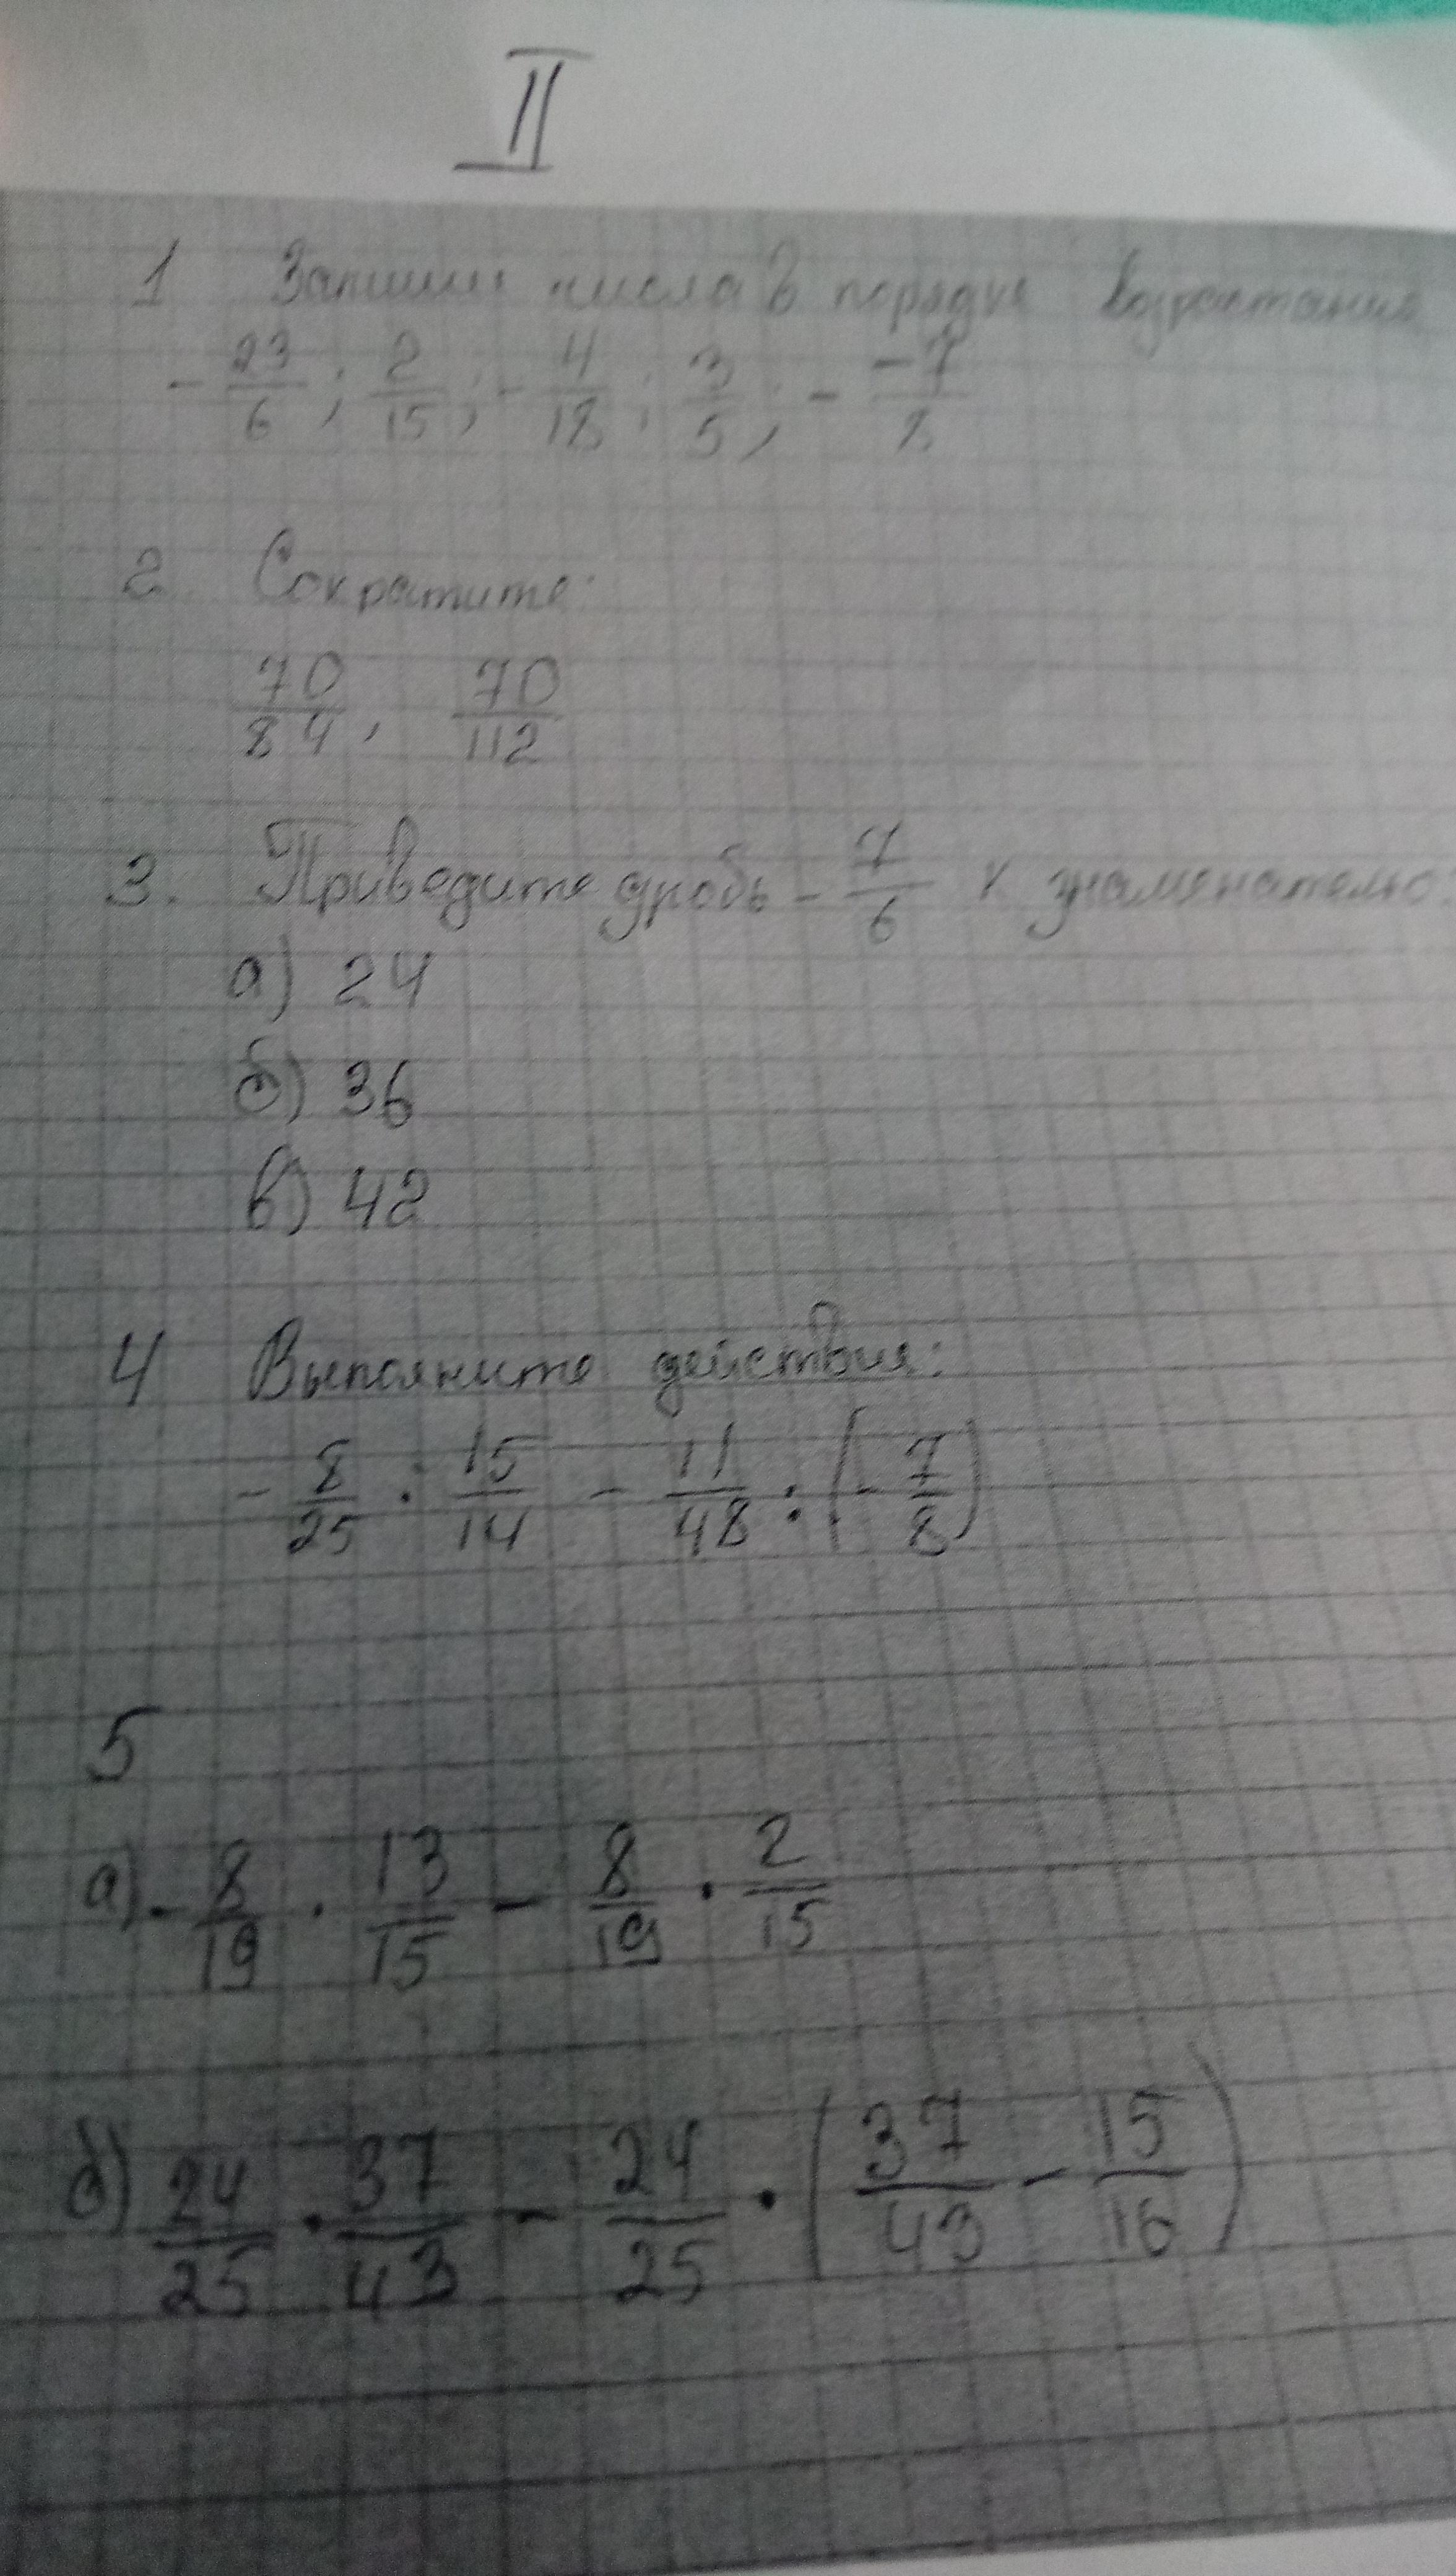 II
1 Запиши числа в порядке возрастания
- 23/6 ; 2/15 ; - 4/18 ; 3/5 ; - -7/8
2. Сократите:
70/84 , 70/112
3. Приведите дробь - 7/6 к знаменателю:
а) 24
б) 36
в) 42
4 Выполните действия:
- 8/25 : 15/14 - 11/48 : (- 7/8)
5
а) - 8/19 · 13/15 - 8/19 · 2/15
б) 24/25 · 37/43 - 24/25 · (37/43 - 15/16)